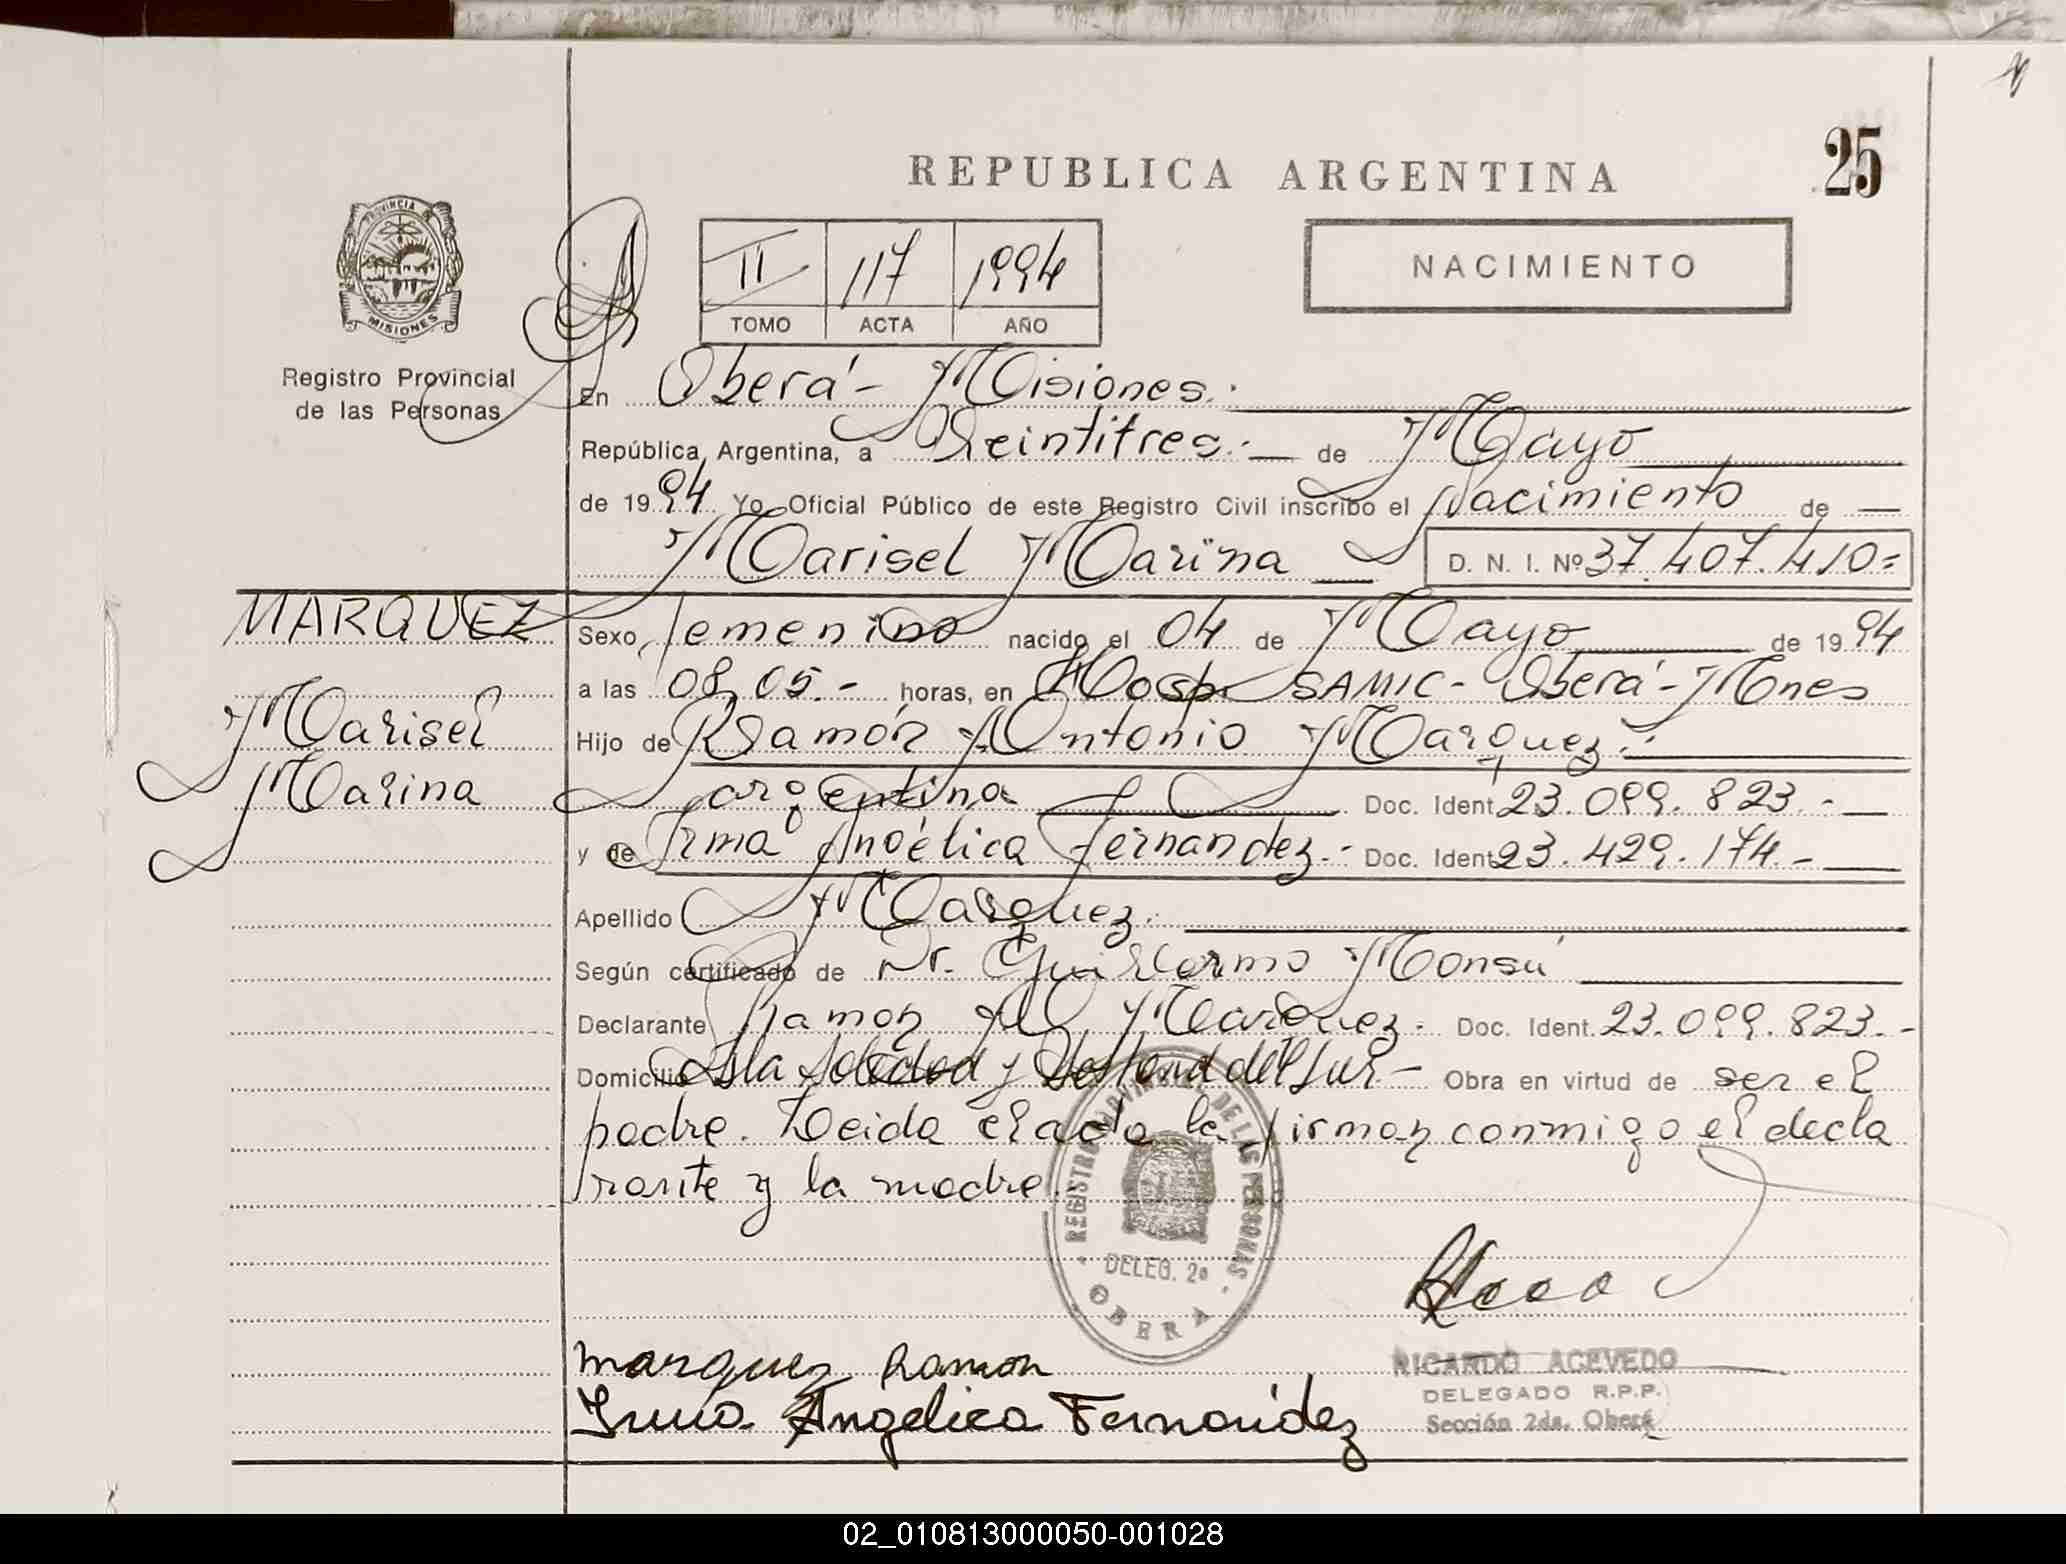 25
REPUBLICA ARGENTINA
PROVINCIA DE
MISIONES
Registro Provincial
de las Personas
II 117 1994
TOMO ACTA AÑO
NACIMIENTO
En Oberá - Misiones.-
República Argentina, a Veintitres.- de Mayo
de 1994 Yo Oficial Público de este Registro Civil inscribo el Nacimiento de
Marisel Marina D. N. I. Nº 37.407.410=
MARQUEZ
Marisel
Marina
Sexo femenino nacido el 04 de Mayo de 1994
a las 08,05.- horas, en Hosp. SAMIC - Oberá - Mnes
Hijo de Ramón Antonio Marquez.-
argentina Doc. Ident. 23.099.823.-
y de Irma Angélica Fernandez.- Doc. Ident. 23.429.174.-
Apellido Marquez.-
Según certificado de Dr. Guillermo Monsú
Declarante Ramon A. Marquez.- Doc. Ident. 23.099.823.-
Domicilio Isla Soledad y del Sur.- Obra en virtud de ser el
padre. Leida el acta la firman conmigo el decla
rante y la madre.
REGISTRO PROVINCIAL DE LAS PERSONAS
DELEG. 2º
OBERA
Marquez Ramon
Irma Angelica Fernández
RICARDO ACEVEDO
DELEGADO R.P.P.
Sección 2da. Oberá
02_010813000050-001028